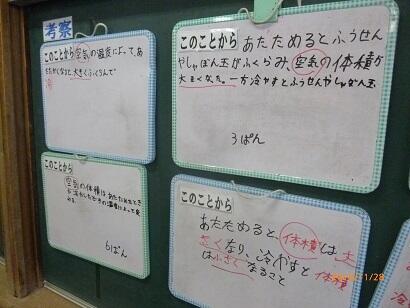 考察
このことから空気の温度によって、あ
たたかくなると、大きくふくらんで
このことから
空気の体積はあたためたとき
や冷やしたときの温度によって変
わる。
6ぱん
このことから あたためるとふうせん
やしゃぼん玉がふくらみ、空気の体積が
大きくなった。一方冷やすとふうせんやしゃぼん玉
3ぱん
このことから
あたためると、体積は、大
きくなり、冷やすと体積
は小さくなること
1/28